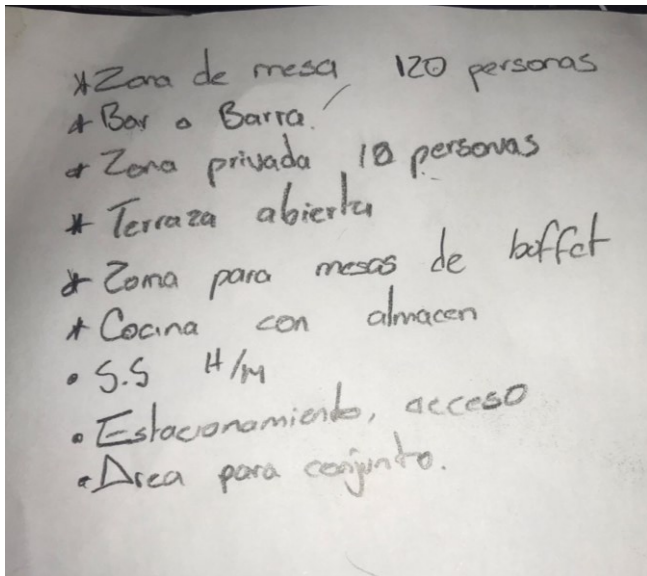 * Zona de mesa 120 personas
* Bar o Barra.
* Zona privada 18 personas
* Terraza abierta
* Zona para mesas de boffet
* Cocina con almacen
• S.S H/M
• Estacionamiento, acceso
• Area para conjunto.